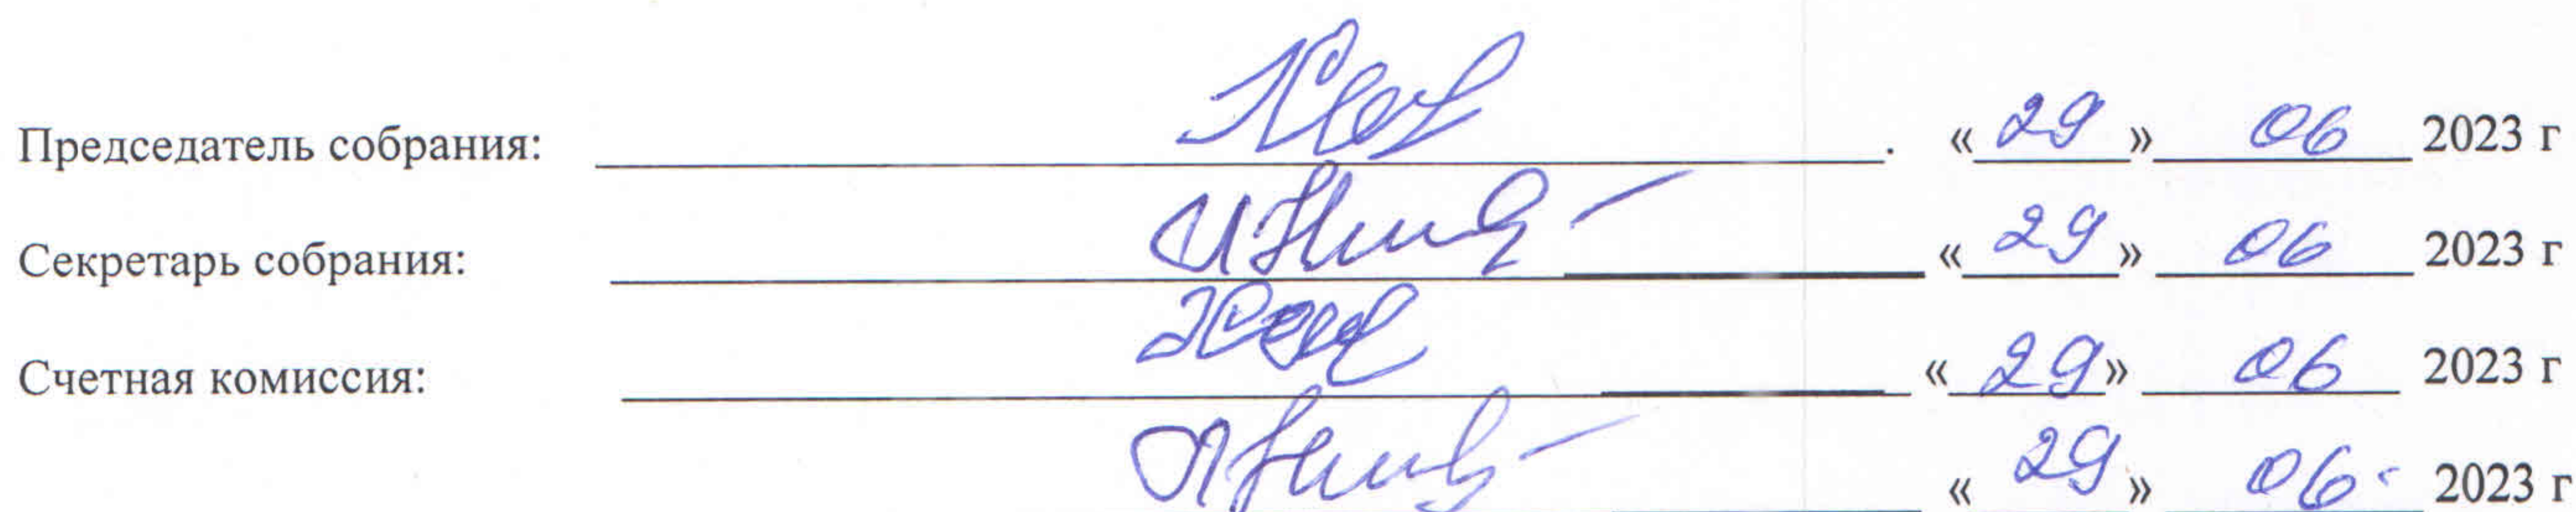 Председатель собрания: . « 29 » 06 2023 г
Секретарь собрания: « 29 » 06 2023 г
Счетная комиссия: « 29 » 06 2023 г
« 29 » 06 2023 г